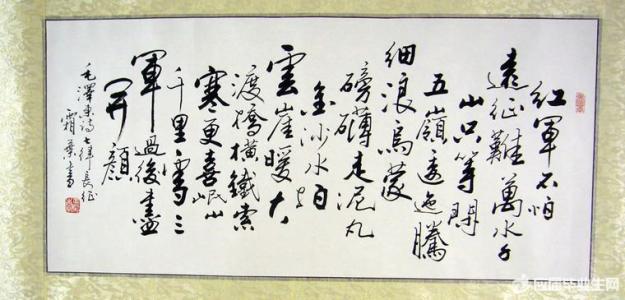 紅軍不怕
遠征難萬水千
山只等閑
五嶺逶迤騰
細浪烏蒙
磅礴走泥丸
金沙水拍
雲崖暖大
渡橋横鐵索
寒更喜岷山
千里雪三
軍過後盡
開顔
毛澤東詩七律長征
霜葉書
应届毕业生网